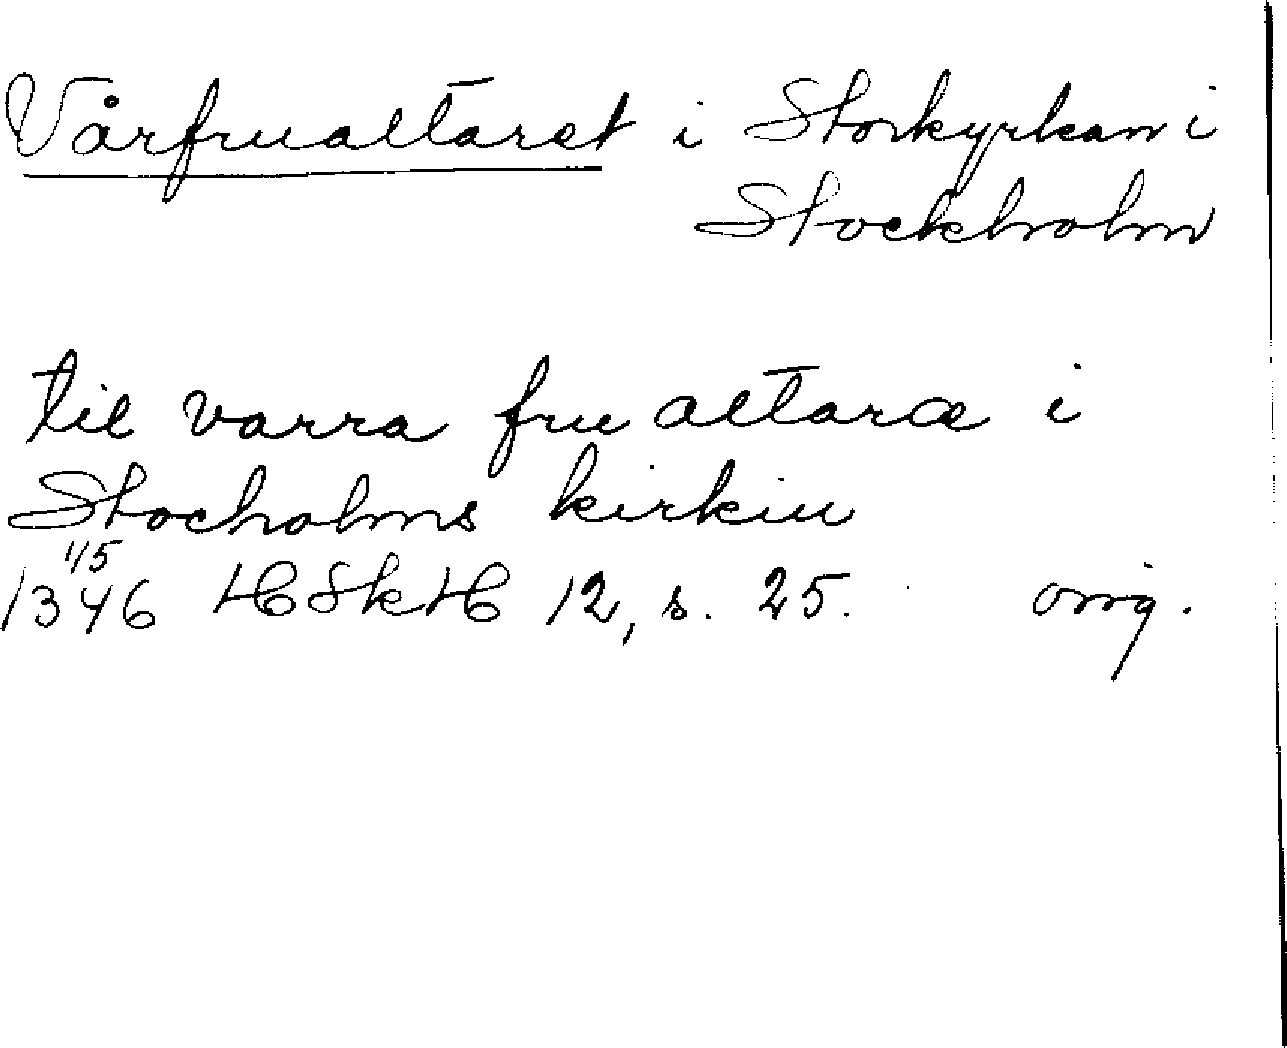 Vårfrualtaret i Storkyrkan i
Stockholm
til varra fru altaræ i
Stocholms kirkiu
1/5
1346 HSkH 12, s. 25. orig.